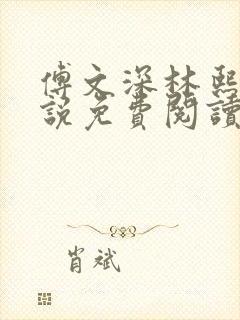 傅文深林熙
說免費閱讀
肖斌